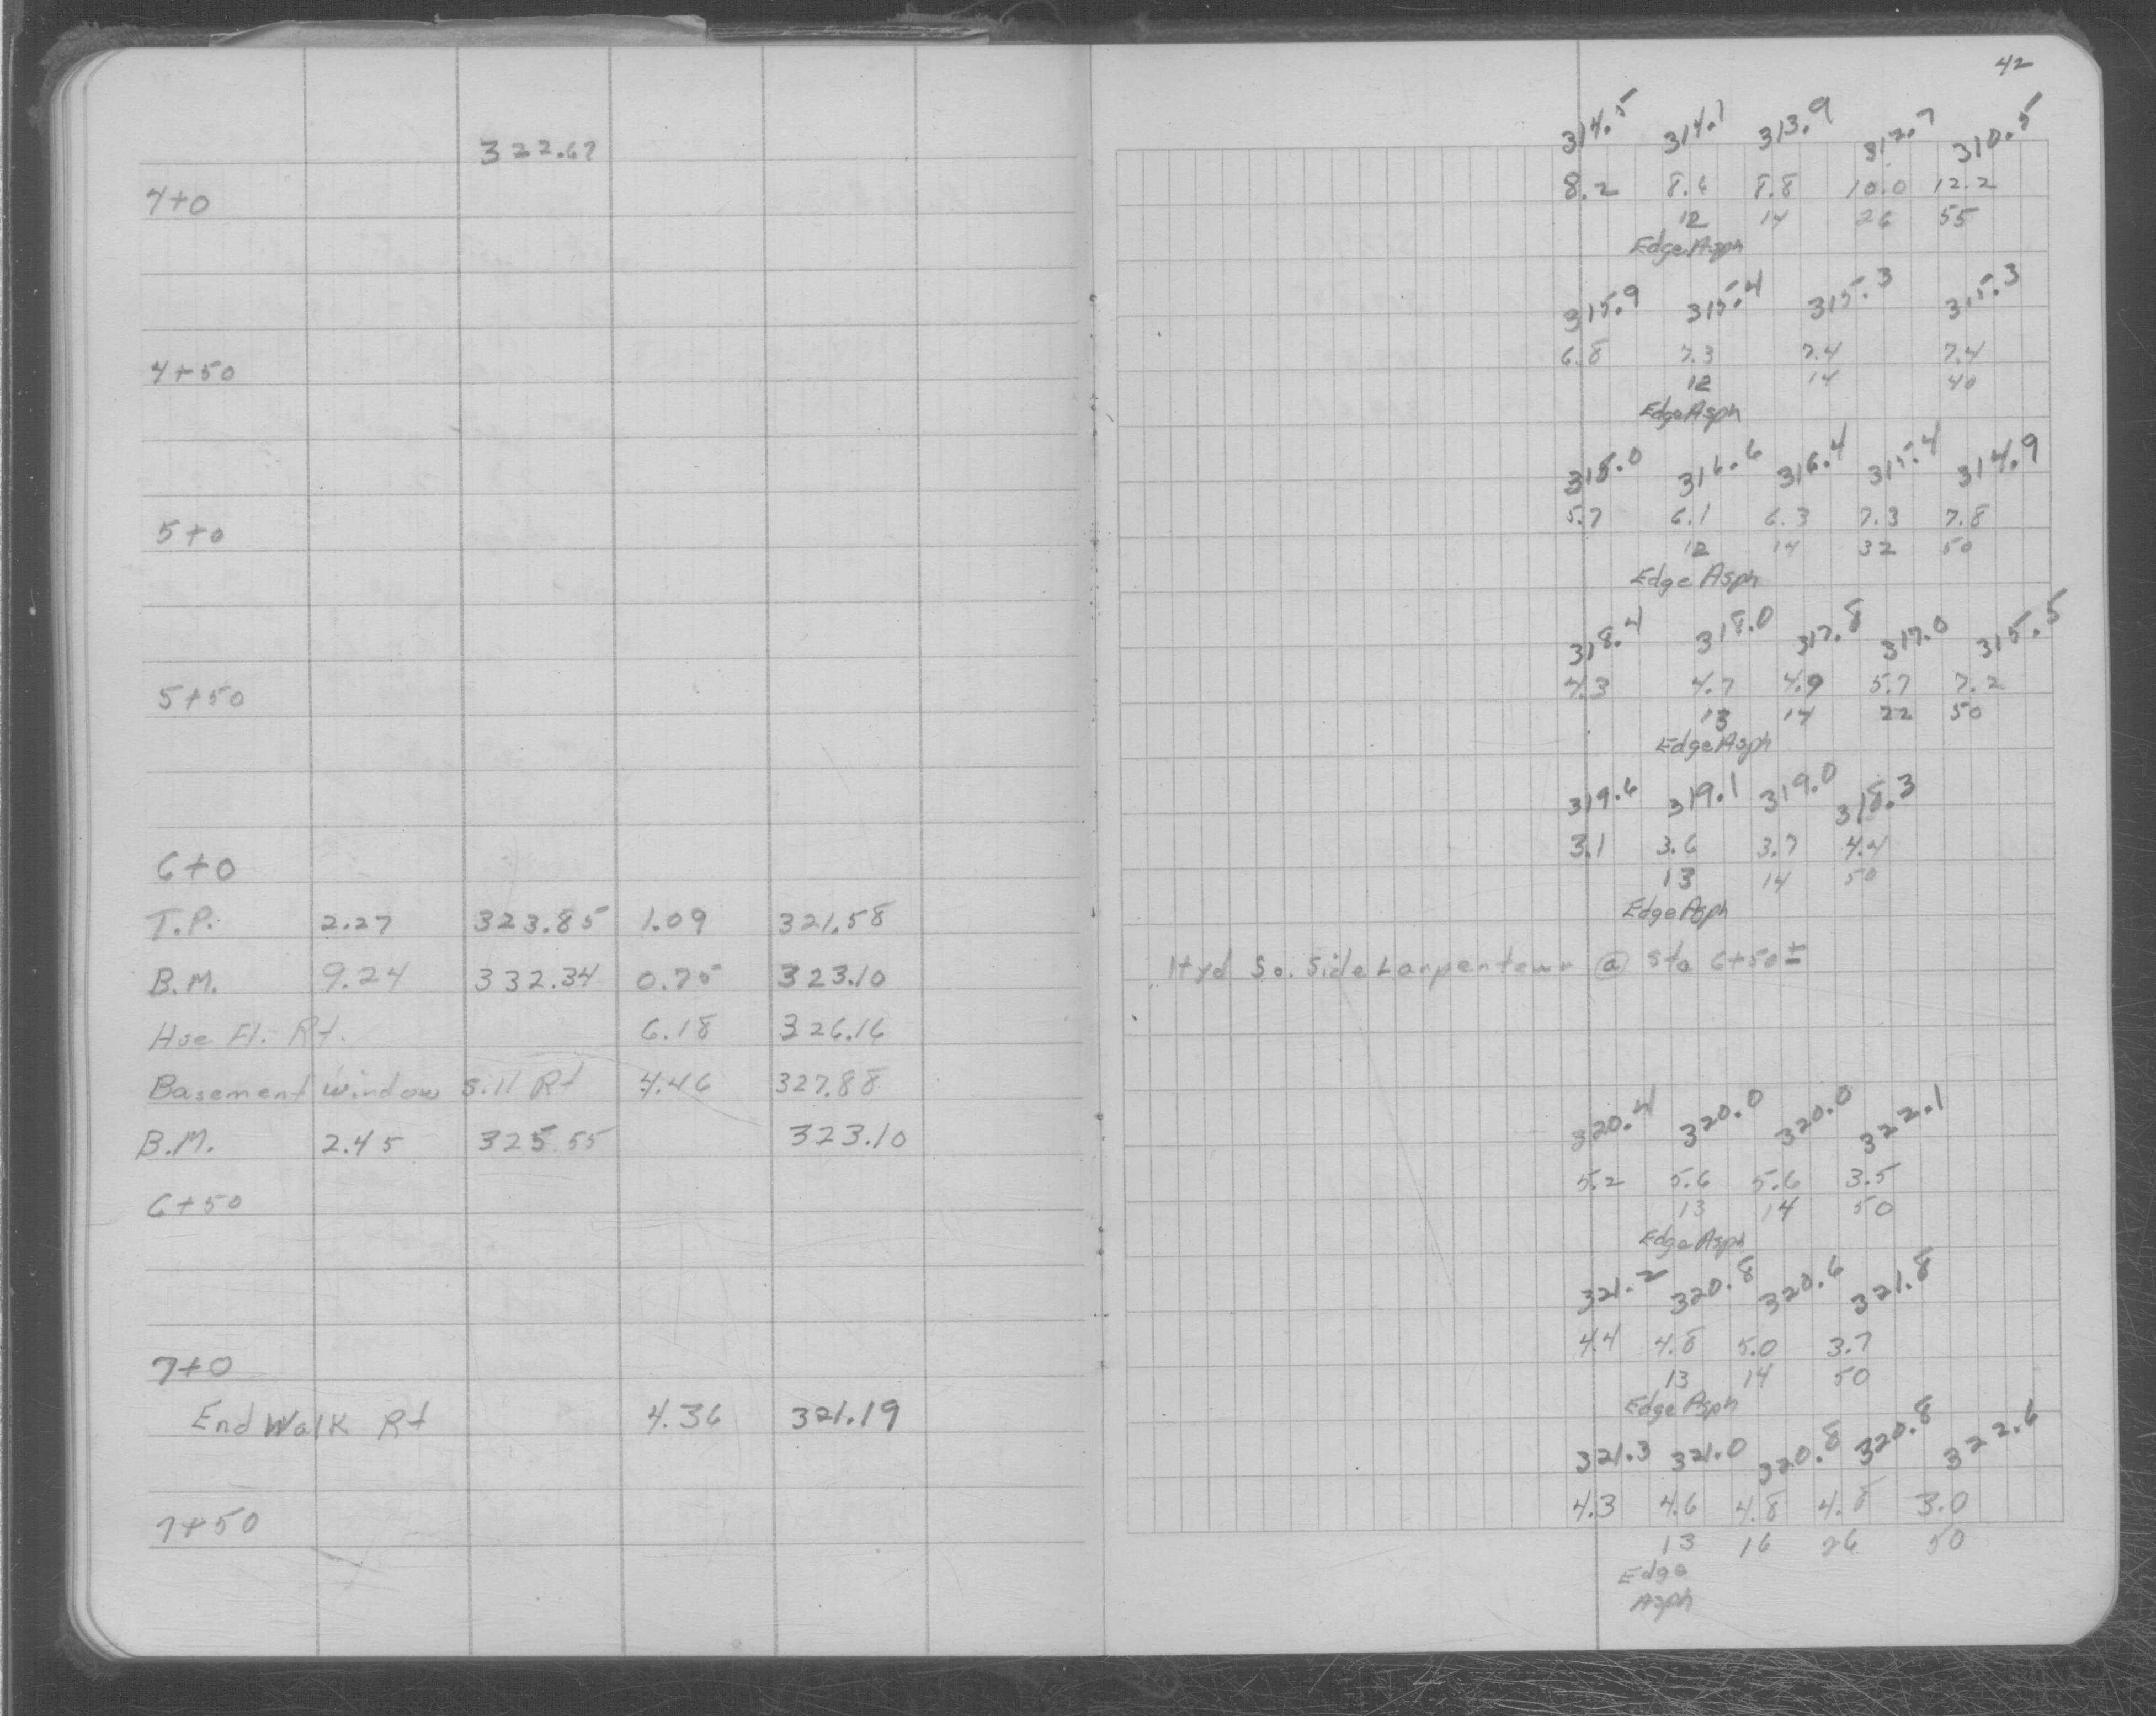 322.67
4+0
4+50
5+0
5+50
6+0
T.P. 2.27 323.85 1.09 321.58
B.M. 9.24 332.34 0.75 323.10
Hse Fl. Rt. 6.18 326.16
Basement Window Sill Rt 4.46 327.88
B.M. 2.45 325.55 323.10
6+50
7+0
End Walk Rt 4.36 321.19
7+50
42
314.5 314.1 313.9 312.7 310.5
8.2 8.6 8.8 10.0 12.2
12 14 26 55
Edge Asph
315.9 315.4 315.3 315.3
6.8 7.3 7.4 7.4
12 14 40
Edge Asph
318.0 316.6 316.4 315.4 314.9
5.7 6.1 6.3 7.3 7.8
12 14 32 50
Edge Asph
318.4 318.0 317.8 317.0 315.5
4.3 4.7 4.9 5.7 7.2
13 14 22 50
Edge Asph
319.6 319.1 319.0 318.3
3.1 3.6 3.7 4.4
13 14 50
Edge Asph
Hyd So. Side Larpenteur @ Sta 6+50±
320.4 320.0 320.0 322.1
5.2 5.6 5.6 3.5
13 14 50
Edge Asph
321.2 320.8 320.6 321.8
4.4 4.8 5.0 3.7
13 14 50
Edge Asph
321.3 321.0 320.8 320.8 322.6
4.3 4.6 4.8 4.8 3.0
13 16 26 50
Edge
Asph